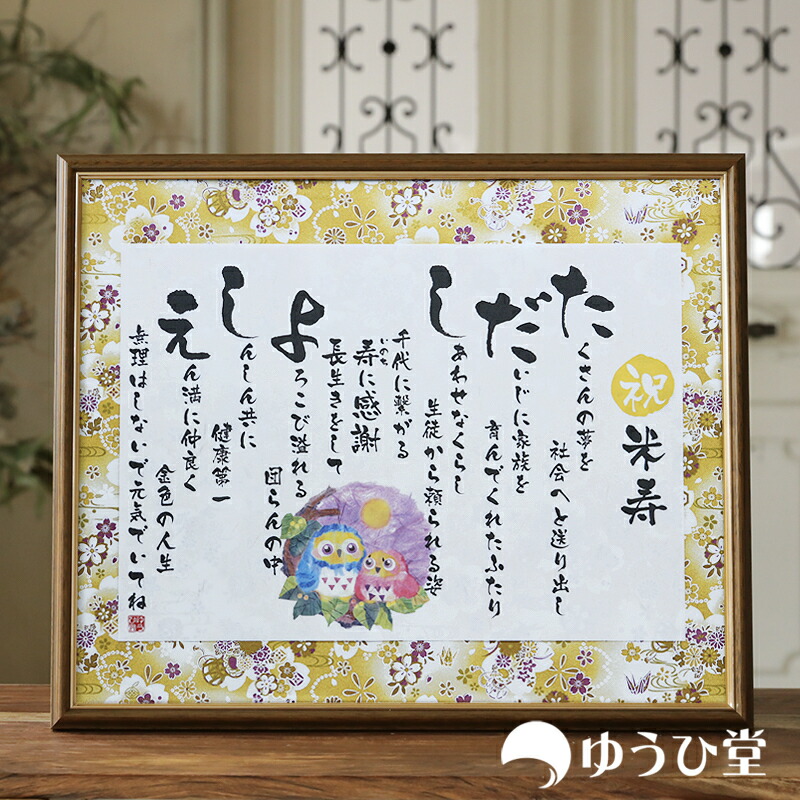 祝
米寿
たくさんの夢を
社会へと送り出し
だいじに家族を
育んでくれたふたり
しあわせなくらし
生徒から頼られる姿
千代に繋がる
寿に感謝
いのち
長生きをして
よろこび溢れる
団らんの中
しんしん共に
健康第一
えん満に仲良く
金色の人生
無理はしないで元気でいてね
ゆうひ堂